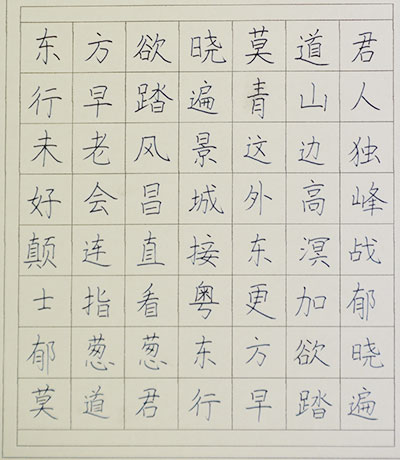 东方欲晓莫道君
行早踏遍青山人
未老风景这边独
好会昌城外高峰
颠连直接东溟战
士指看粤更加郁
郁葱葱东方欲晓
莫道君行早踏遍